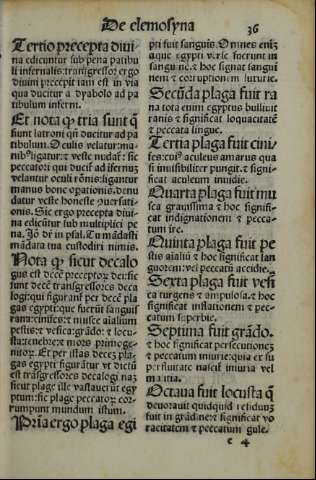 De elemosyna
36
Tertio precepta diui
na edicuntur sub pena patibu
li infernalis: transgressor ergo
diuini precepti iam est in via
qua ducitur a dyabolo ad pa
tibulum inferni.
Et nota ꝙ tria sunt ꝗ̃
sunt latroni qñ ducitur ad pa
tibulum. Oculis velatur: ma-
nibꝰ ligatur: et veste nudat᷑: sic
peccatori qui ducit᷑ ad infernũ
velantur oculi rõnis: ligantur
manus bone opationis. denu
datur veste honeste ꝯuersati-
onis. Sic ergo precepta diui-
na edicũtur sub multiplici pe
na. Iõ dr̃ in psal. Tu mãdasti
mãdata tua custodiri nimis.
Nota ꝙ sicut decalo
gus est decẽ preceptoꝝ dei: sic
sunt decẽ trãsgressores deca
logi: qui figurant᷑ per decẽ pla
gas egypti: que fuerũt sanguis
rana: cinifes: et musce aialium
pestis: et vesica: grãdo: et locu-
sta: tenebre: et mors primoge-
nitoꝝ. Et per istas decẽ pla-
gas egypti figurãtur vt dictũ
est trãsgressores decalogi. nã
sicut plage ille vastauerũt egy
ptum: sic plage peccatoꝝ cor-
rumpunt mundum istum.
Pri̇̃a ergo plaga egi
pti fuit sanguis. Omnes eniꝫ
aque egypti verse fuerunt in
sanguinẽ. et hoc signat sangui
nem et corruptionem luxurie.
Secũda plaga fuit ra
na tota enim egyptus bulliuit
ranis et significat loquacitatẽ
et peccata lingue.
Tertia plaga fuit cini-
fes: cuiꝰ aculeus amarus qua
si inuisibiliter pungit. et signifi
cat aculeum inuidie.
Quarta plaga fuit mu
sca grauissima et hoc signifi-
cat indignationem et pecca-
tum ire.
Quinta plaga fuit pe
stis aialiũ et hoc significat lan
guorem: vel peccatũ accidie.
Sexta plaga fuit vesi
ca turgens et ampulosa. et hoc
significat inflationem et pec-
catum superbie.
Septima fuit grãdo.
et hoc significat persecutioneꝫ
et peccatum iniurie: quia ex su
perfluitate nascit᷑ iniuria vel
ina ina.
Octaua fuit locusta ꝗ̃
deuorauit quidquid residuuꝫ
fuit in grãdine: et significat vo
racitatem et peccatum gule.
e 4